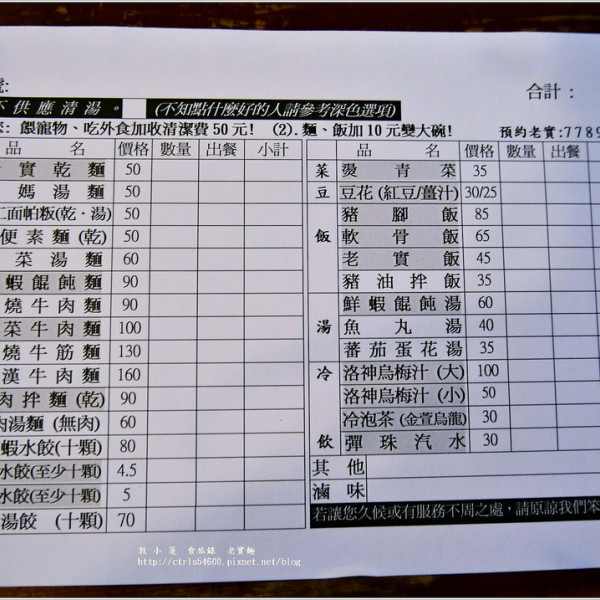 合計：
不供應清湯。 (不知點什麼好的人請參考深色選項)
餵寵物、吃外食加收清潔費50元! (2).麵、飯加10元變大碗! 預約老實:7789
品名 價格 數量 出餐 小計
實乾麵 50
媽湯麵 50
面帕粄(乾·湯) 50
便素麵(乾) 50
菜湯麵 60
蝦餛飩麵 90
燒牛肉麵 90
菜牛肉麵 100
燒牛筋麵 130
漢牛肉麵 160
肉拌麵(乾) 90
肉湯麵(無肉) 60
蝦水餃(十顆) 80
水餃(至少十顆) 4.5
水餃(至少十顆) 5
湯餃 (十顆) 70
品名 價格 數量 出餐
菜 燙青菜 35
豆 豆花(紅豆/薑汁) 30/25
飯 豬腳飯 85
軟骨飯 65
老實飯 45
豬油拌飯 35
湯 鮮蝦餛飩湯 60
魚丸湯 40
蕃茄蛋花湯 35
冷飲 洛神烏梅汁(大) 100
洛神烏梅汁(小) 50
冷泡茶(金萱烏龍) 30
彈珠汽水 30
其他
滷味
若讓您久候或有服務不周之處,請原諒我們笨
敦小蓮 食旅錄 老實麵
http://ctrls54600.pixnet.net/blog